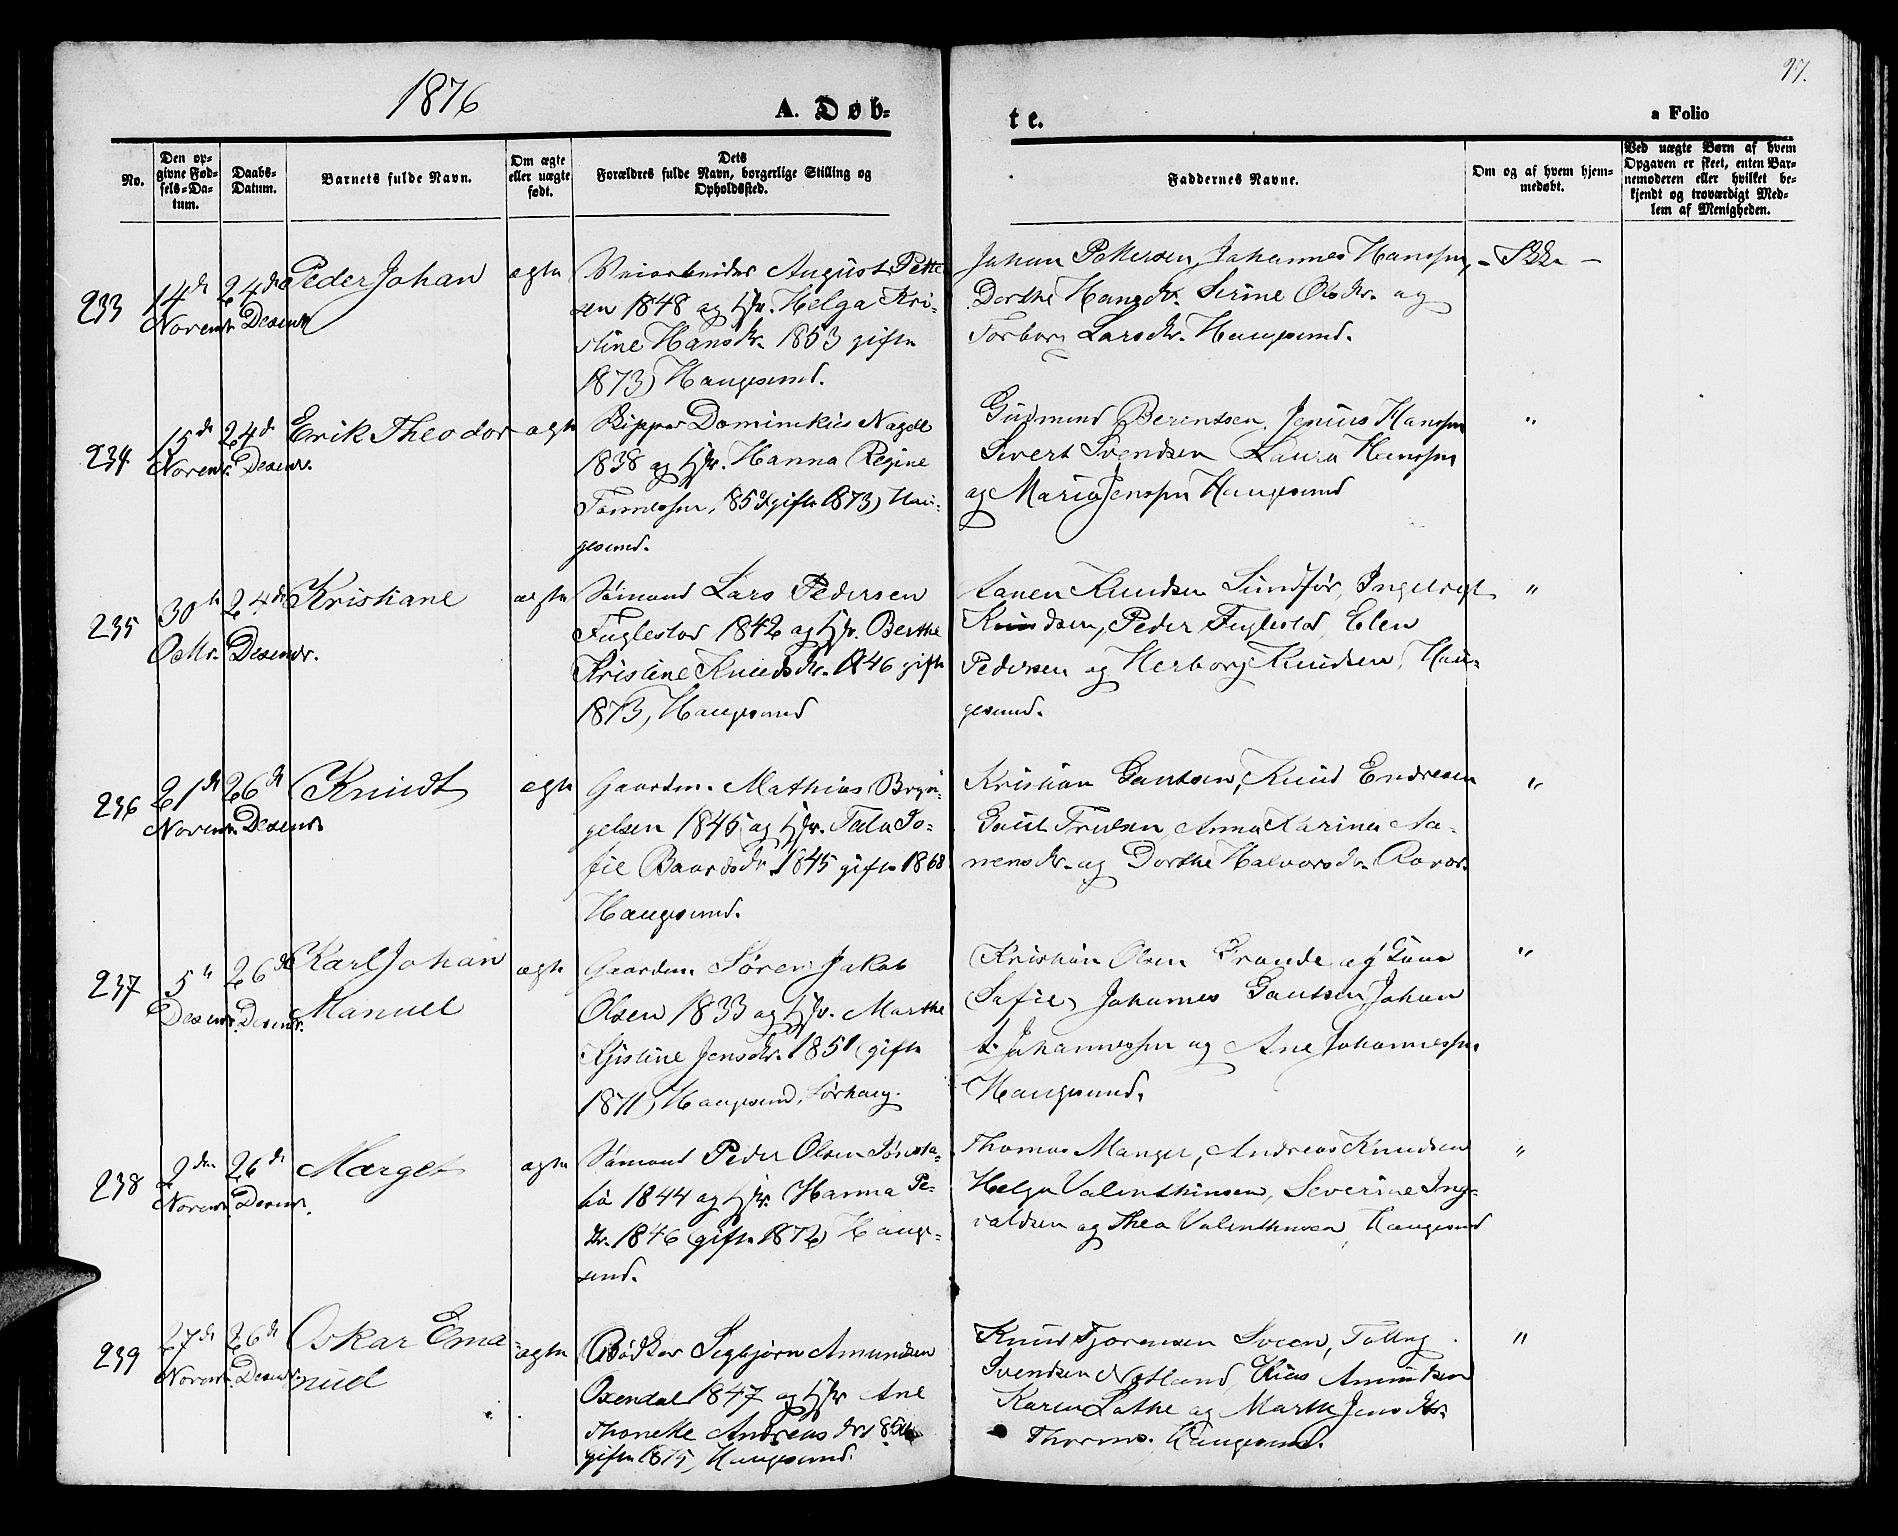 1876
A. Døb=
te.
a Folio
97.
No.
Den op-
givne Fød-
sels-Da-
tum.
Daabs-
Datum.
Barnets fulde Navn.
Om ægte
eller uægte
født.
Dets
Forældres fulde Navn, borgerlige Stilling og
Opholdssted.
Faddernes Navne.
Om og af hvem hjem-
medøbt.
Ved uægte Børn af hvem
Opgaven er skeet, enten Bar-
nemoderen eller hvilket be-
kjendt og troværdigt Med-
lem af Menigheden.
233
14de
Novembr.
24de
Desembr.
Peder Johan
ægte
Veiarbeider August Pette
sen 1848 og Hstr. Helga Kri-
stine Hansdtr. 1853 gifte
1873) Haugesund.
Johan Pettersen, Johannes Hanssen,
Dorthe Hansdtr. Serine Olsdtr. og
Torborg Larsdtr. Haugesund.
- Ikke -
234
15de
Novembr.
24de
Desembr.
Erik Theodor
ægte
Skipper Dominikus Nagel
1838 og Hstr. Hanna Regine
Tønnessen, 1852 gifte 1873) Hau-
gesund.
Gudmund Berentsen, Jenius Hanssen
Sivert Svendsen Laura Hanssen
og Maria Jenssen Haugesund
"
235
30te
Oktbr.
24de
Desembr.
Kristiane
ægte
Sømand Lars Pedersen
Fuglestad 1842 og Hstr. Berthe
Kristine Knudsdtr. 1846 gifte
1873, Haugesund
Aanen Knudsen Sundfør, Ingebregt
Knudsen, Peder Fuglestad, Elen
Pedersen og Herborg Knudsen, Hau-
gesund.
"
236
21de
Novembr.
26de
Desembr.
Knudt
ægte
Gaardm. Mathias Bryn-
gelsen 1845 og Hstr. Tala So-
fie Baardsdtr. 1845 gifte 1868
Haugesund.
Kristian Gautsen, Knud Endresen
Gaut Anna Karina Aa-
nensdtr. og Dorthe Halvorsdtr.
"
237
5te
Desembr.
26de
Desembr.
Karl Johan
Manuel
ægte
Gaardm. Søren Jakob
Olsen 1833 og Hstr. Marthe
Kjistine Jensdtr. 1851 (gifte
1871) Haugesund, Sørhaug.
Kristian Olsen Grande og
Sofie, Johannes Gautsen, Johan
Johannessen og Ane Johannessen
Haugesund.
"
238
2den
Novembr.
26de
Desembr.
Marget
ægte
Sømand Peder Olsen
1844 og Hstr. Hanna Pe-
dtr. 1846 (gifte 1872) Hauge-
sund.
Thomas Manger, Andreas Knudsen
Helga Valenthinsen, Severine Ing-
valdsen og Thea Valenthinsen, Haugesund
"
239
27de
Novembr.
26de
Desembr.
Oskar Ema
nuel
ægte
Bødker Sigbjørn Amundsen
Oxendal 1847 og Hstr Ane
Thonette Andreasdtr
gifte 1875, Haugesund.
Knud Sveen,
Svendsen Amundsen
Karen Lothe og Marthe Jensdtr.
Haugesund.
"